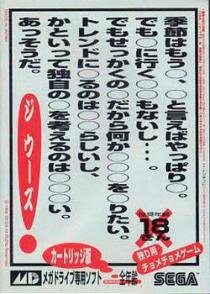 季節はもう○、○と言えばやっぱり○。
でも○に行く○もないし…。
でもせっかくの○だから何か○○○を○りたい。
トレンドに○るのは○○らしいし、
かといって独自の○を考えるのは○○い。
あっそうだ。
ジ ウーズ!
18
カートリッジ版
独り用
チョメチョメゲーム
MD メガドライブ専用ソフト
全年齢
SEGA